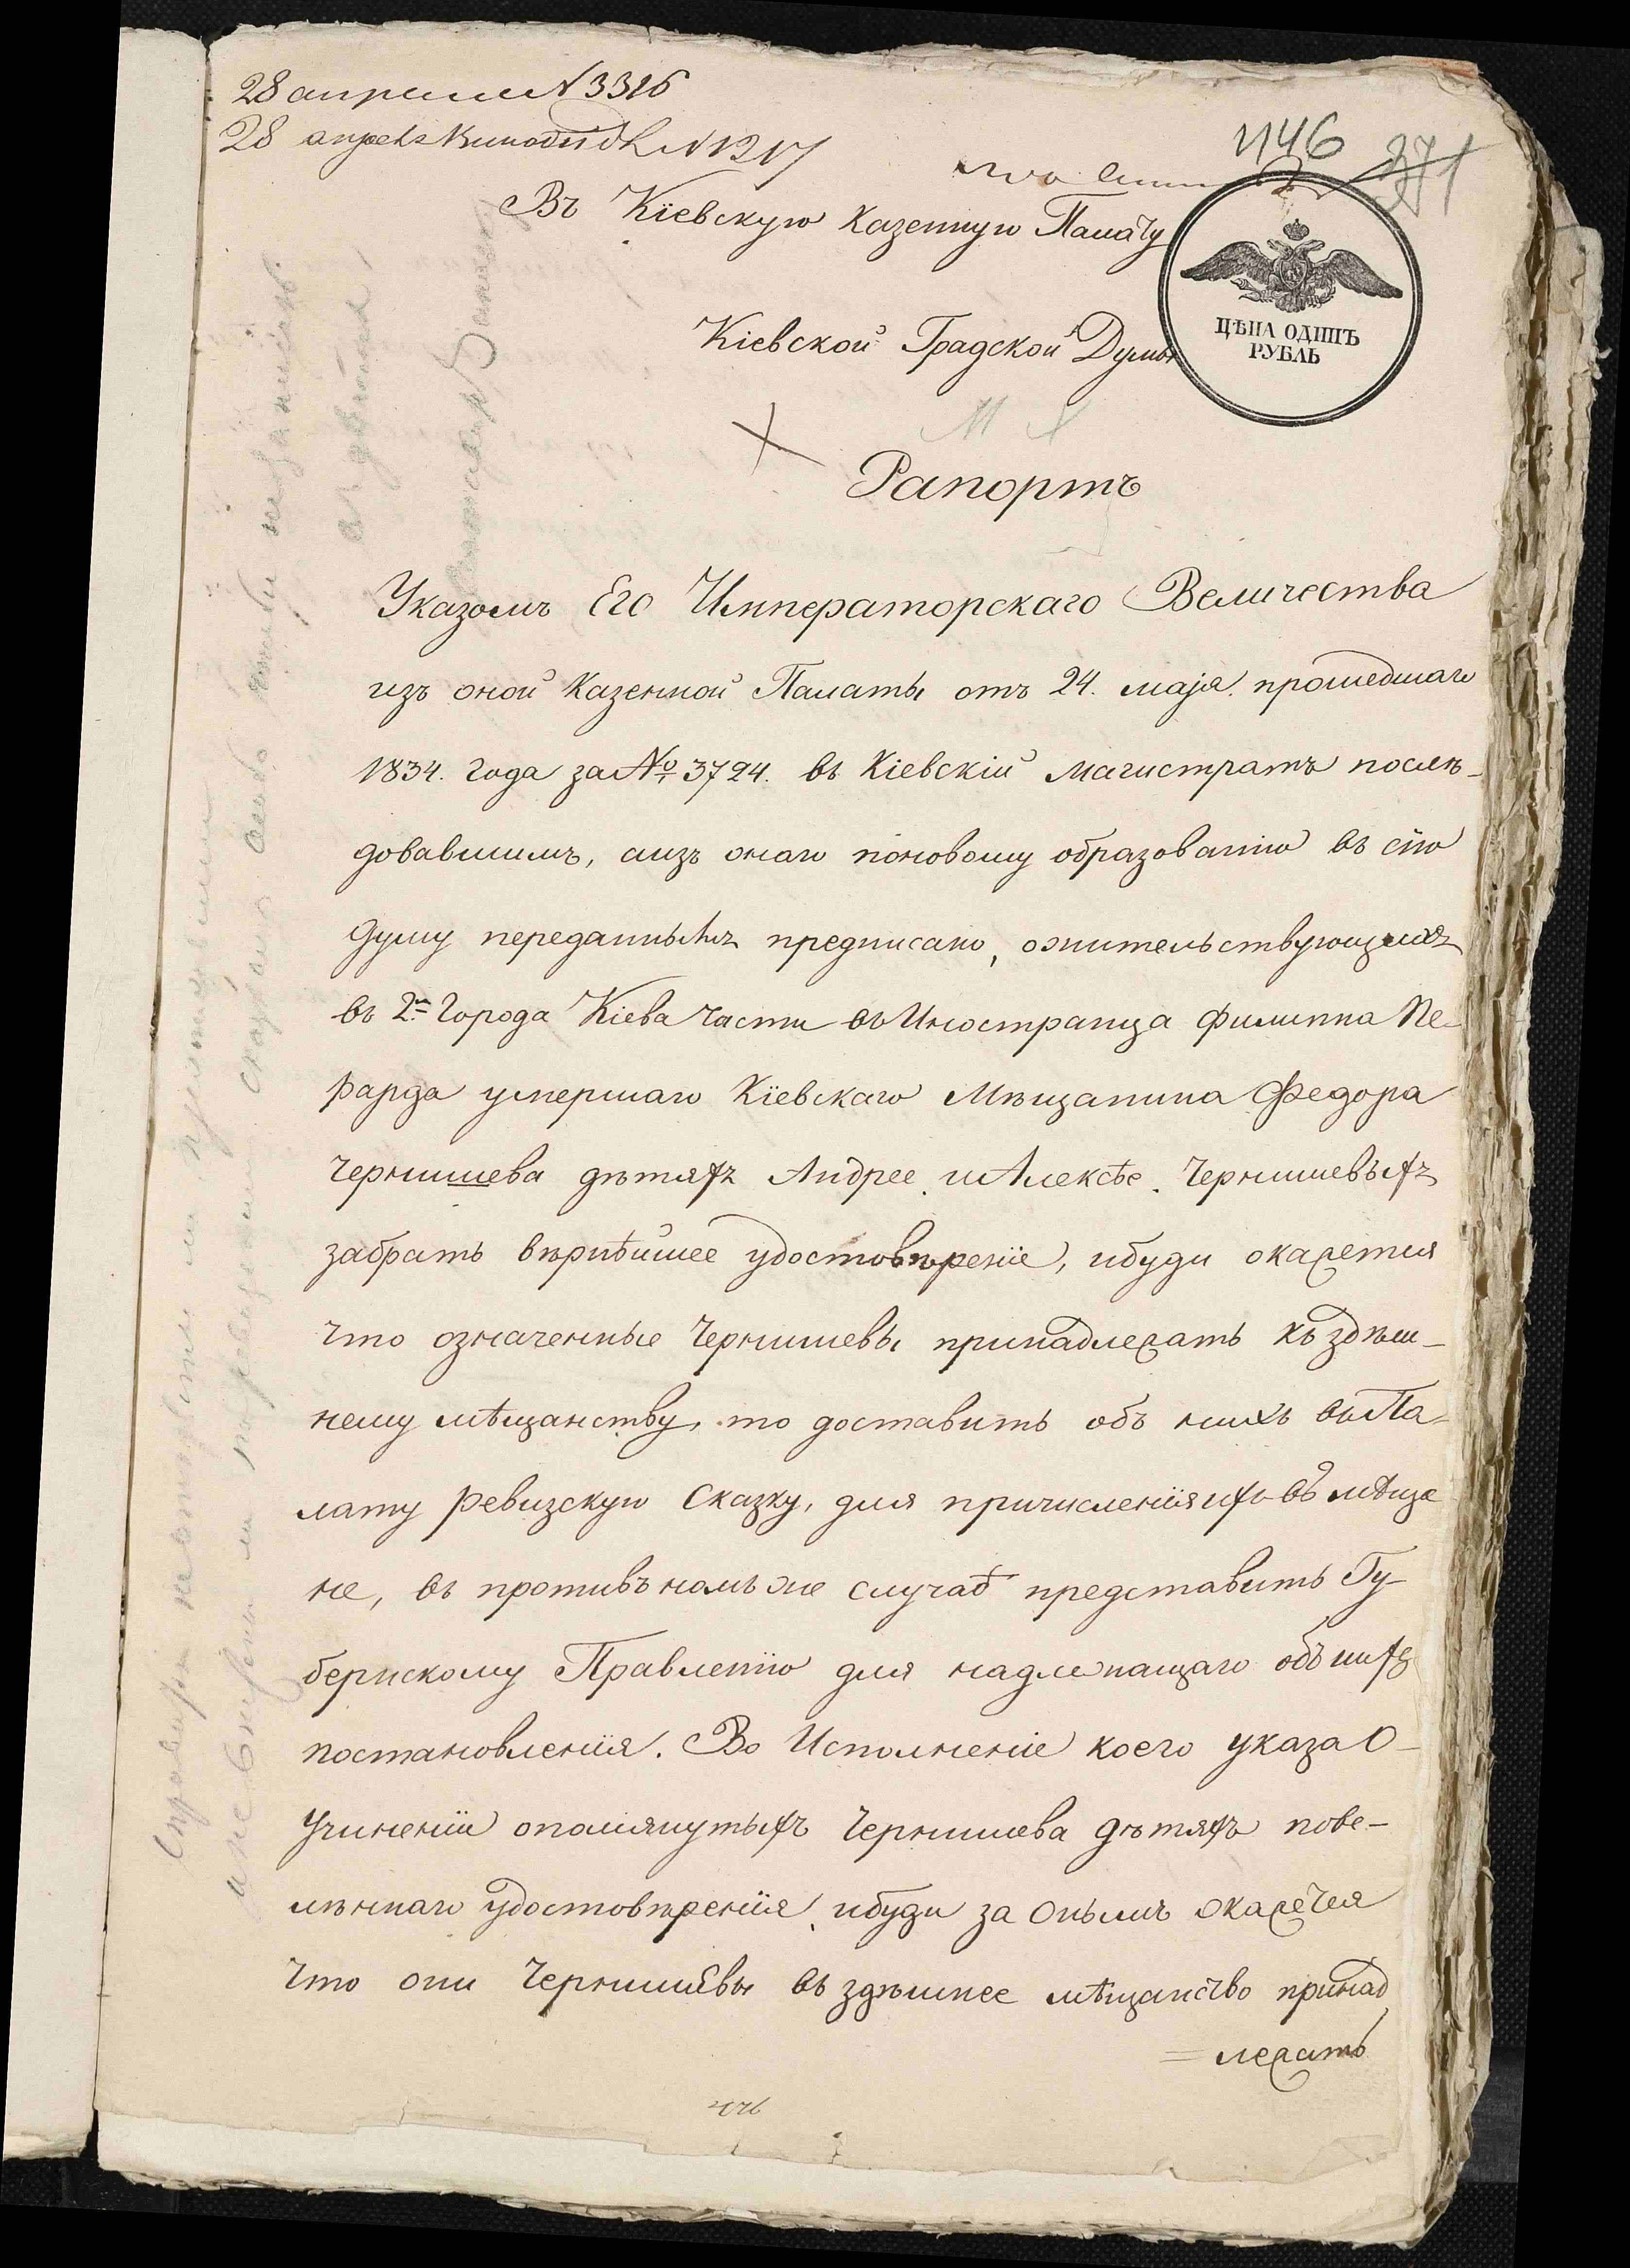 28 апреля № 3316
28 апреля № 1217
1146 271
Въ Кіевскую Казенную Палату
ЦѢНА ОДИНЪ
РУБЛЬ
Кіевской Градской Думы
Рапортъ
Указомъ Его Императорскаго Величества
изъ оной Казенной Палаты отъ 24. маія прошедшаго
1834. года за № 3724. въ Кіевскій Магистратъ послѣ-
довавшимъ, аизъ онаго поновому образованію въ сію
думу переданныхъ предписано, ожительствующихъ
въ 2й города Кіева части въ Иностранца Филиппа Пе-
рарда умершаго Кіевскаго Мѣщанина Федора
Чернишева дѣтяхъ Андрее иАлексѣе Чернишевыхъ
забрать вѣрнѣйшее удостовѣреніе, ибуди окажется
что означенные Чернишевы принадлежатъ къ здѣш-
нему мѣщанству, то доставить объ нихъ въ Па-
лату ревизскую сказку, для причисленія ихъ въ мѣща
не, въ противъномъ же случаѣ представить Гу-
бернскому Правленію для надлежащаго объ нихъ
постановленія. Во Исполненіе коего указа О-
учиненіи опомянутыхъ Чернишева дѣтяхъ пове-
лѣннаго удостовѣренія, ибуди за онымъ окажется
что они Чернишевы въ здѣшнее мѣщанство принад
= лежатъ